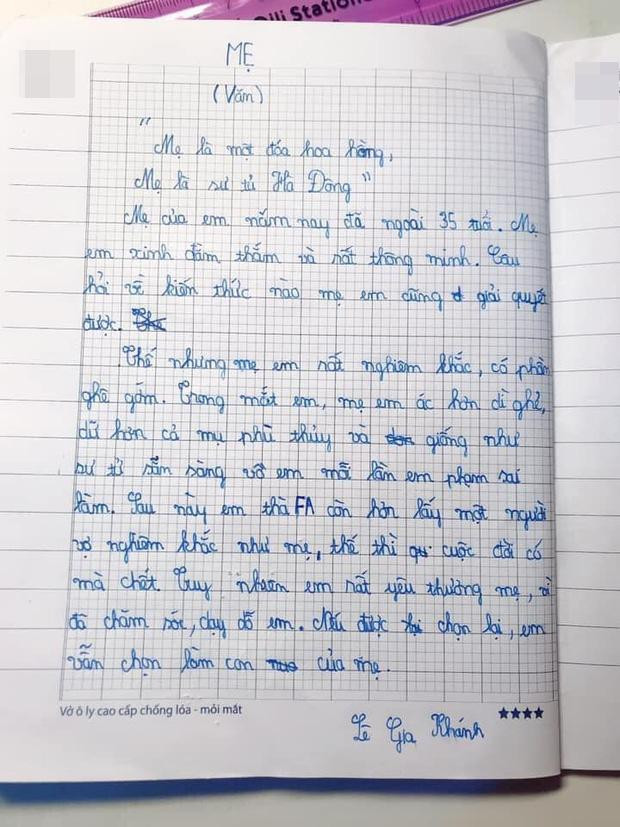 Oli Station
MẸ
(Văn)
"
Mẹ là một đóa hoa hồng,
Mẹ là sư tử Hà Đông "
Mẹ của em năm nay đã ngoài 35 tuổi. Mẹ
em xinh đằm thắm và rất thông minh. Câu
hỏi về kiến thức nào mẹ em cũng giải quyết
được.
Thế nhưng mẹ em rất nghiêm khắc, có phần
ghê gớm. Trong mắt em, mẹ em ác hơn dì ghẻ,
dữ hơn cả mụ phù thủy và giống như
sư tử sẵn sàng vồ em mỗi lần em phạm sai
lầm. Sau này em thà FA còn hơn lấy một người
vợ nghiêm khắc như mẹ, thế thì cuộc đời có
mà chết. Tuy nhiên em rất yêu thương mẹ, vì
đã chăm sóc, dạy dỗ em. Nếu được chọn lại, em
vẫn chọn làm con của mẹ.
Vở ô ly cao cấp chống lóa - mỏi mắt
Lê Gia Khánh